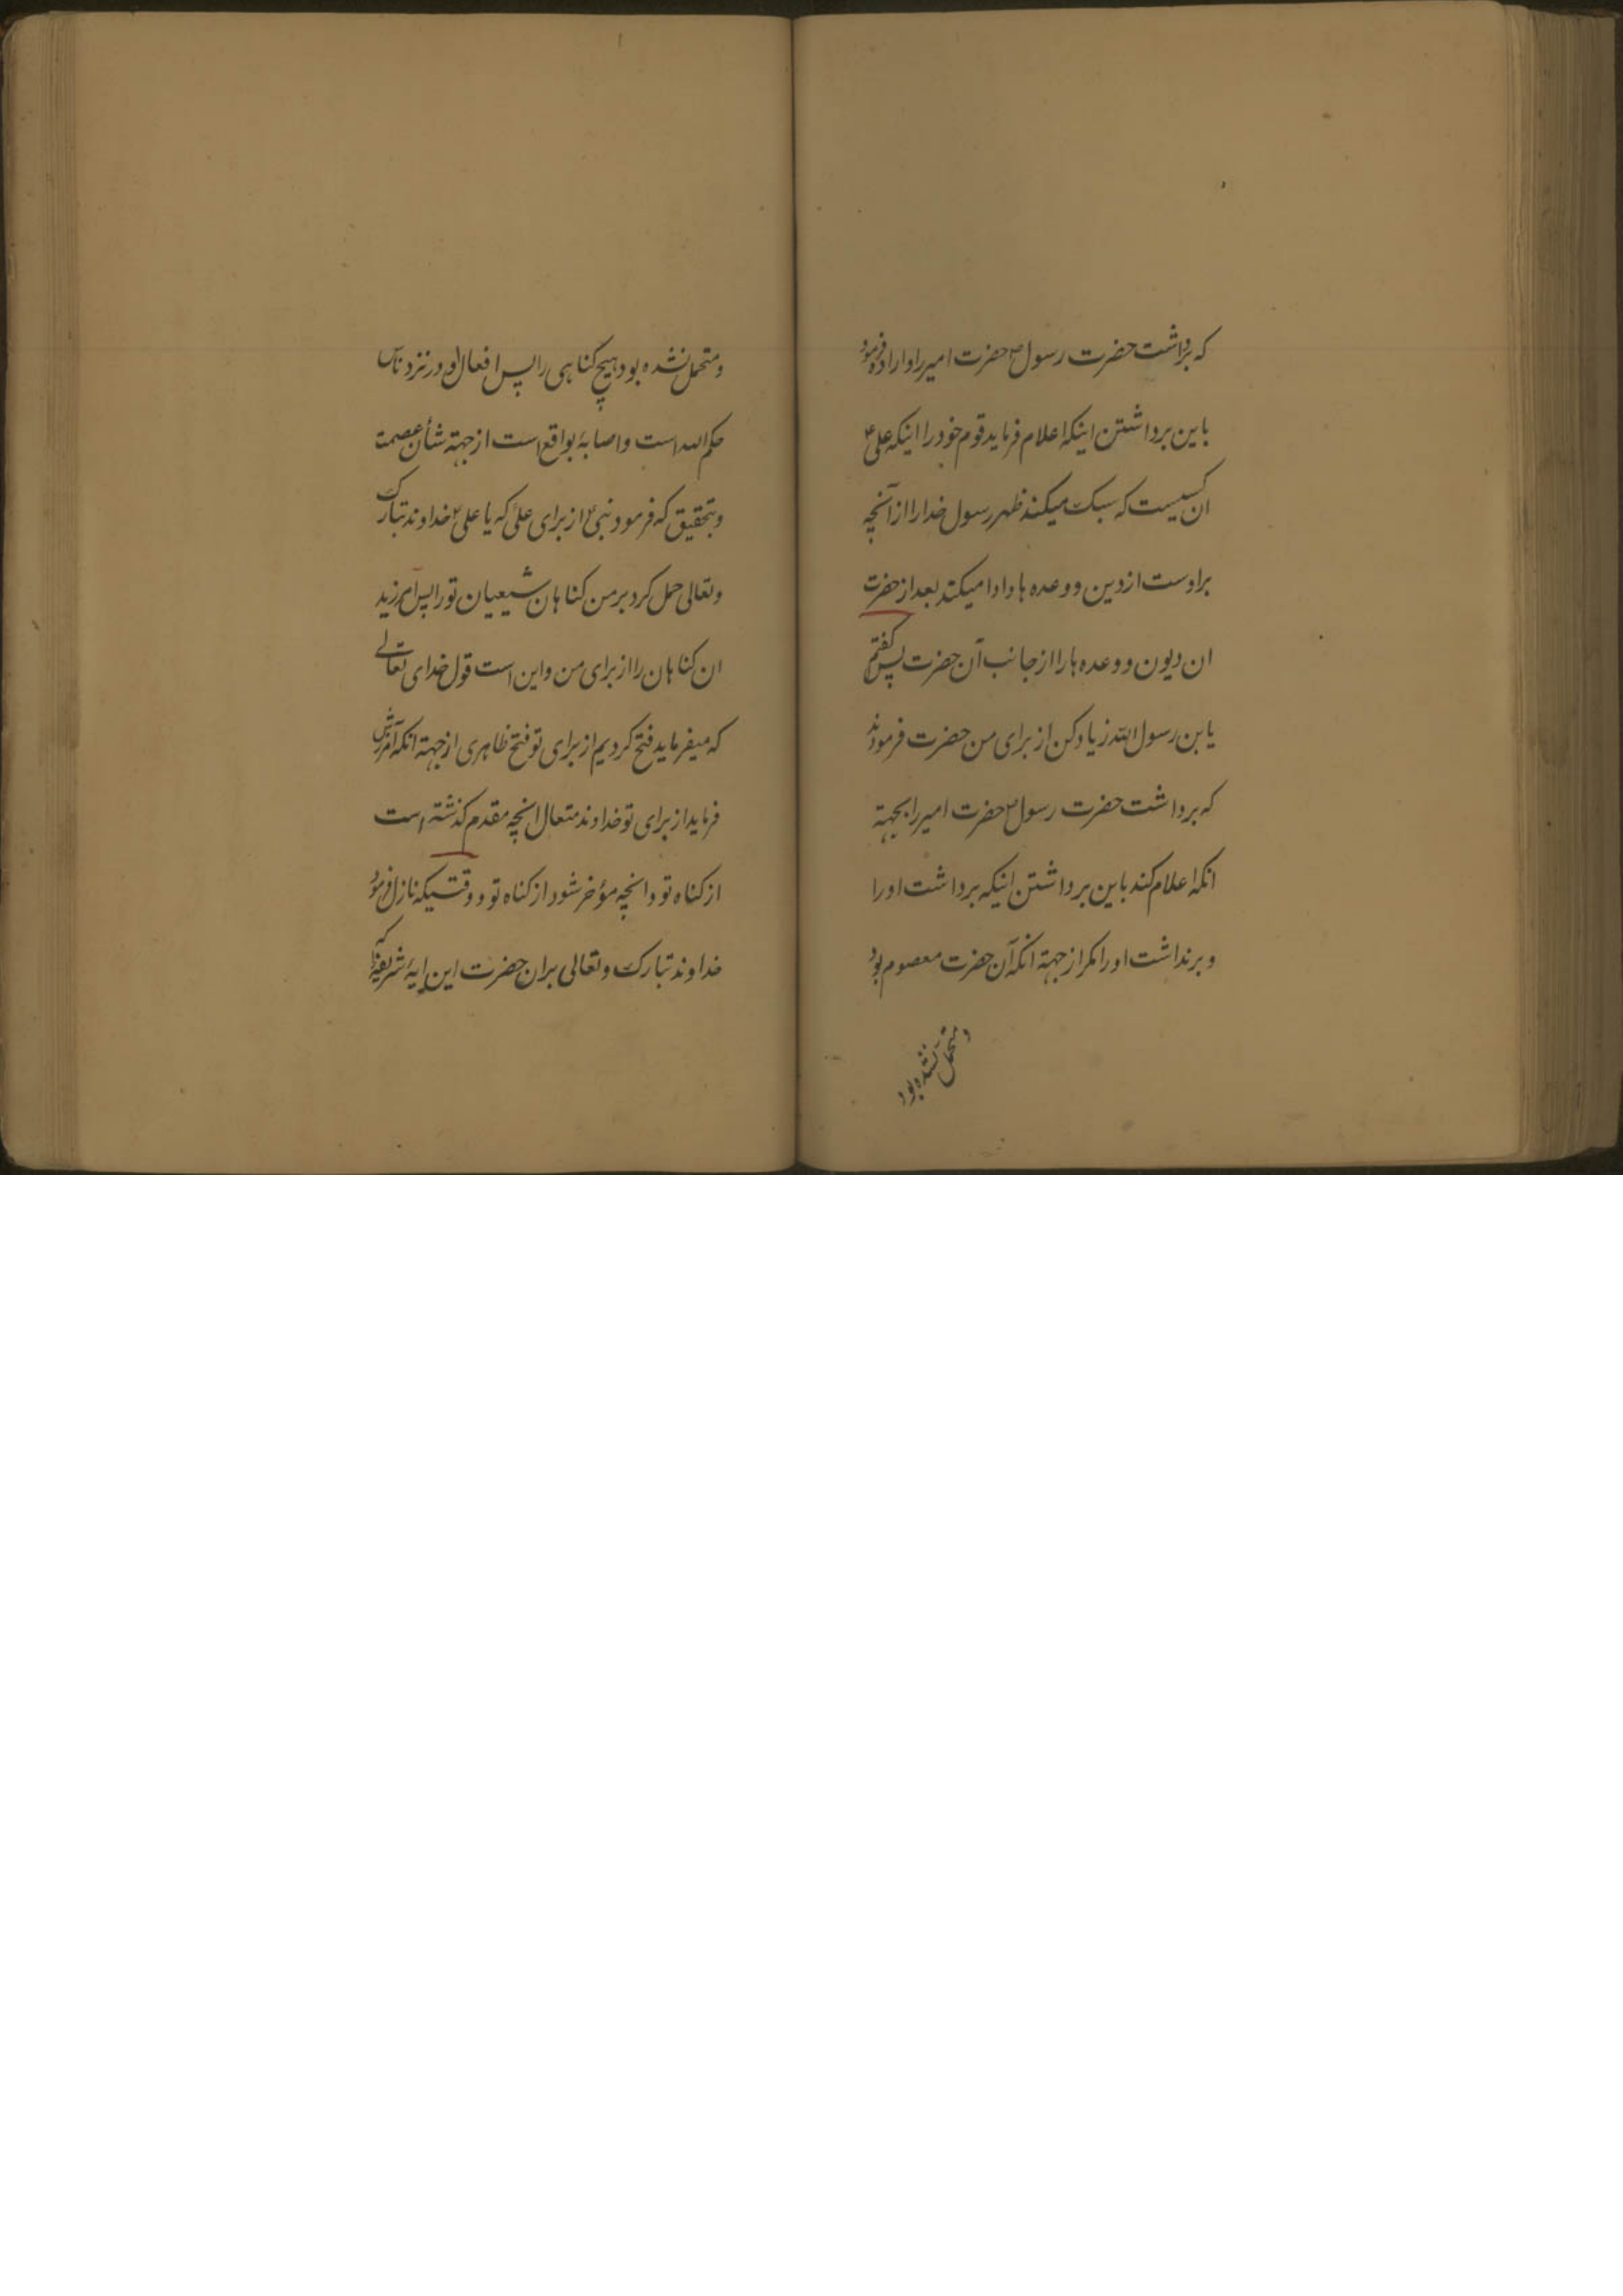 که برداشت حضرت رسول ص حضرت امیر را و اراده فرمود
باین برداشتن اینکه اعلام فرماید قوم خود را اینکه علی ع
ان کسیست که سبک میکند ظهر رسول خدا را از آنچه
بر اوست از دین و وعده ها و ادا میکند بعد از حضرت
ان دیون و وعده ها را از جانب آن حضرت پس گفتم
یابن رسول الله زیاد کن از برای من حضرت فرمودند
که برداشت حضرت رسول ص حضرت امیر را بجهة
انکه اعلام کند باین برداشتن اینکه برداشت او را
و برنداشت او را مکر از جهة انکه آن حضرت معصوم بود
و متحمل نشده بود
و متحمل نشده بود هیچ کناهی را پس افعال او در نزد ناس
حکم الله است و اصابهٔ بواقع است از جهة شأن عصمة
و بتحقیق که فرمود نبی ص از برای علی که یا علی ع خداوند تبارک
و تعالی حمل کرد بر من کناهان شیعیان تو را پس آمرزید
ان کناهان را از برای من و این است قول خدای تعالی
که میفرماید فتح کردیم از برای تو فتح ظاهری از جهة انکه آمرزش
فرماید از برای تو خداوند متعال انچه مقدم کذشته است
از کناه تو و انچه مؤخر شود از کناه تو و وقتیکه نازل فرمود
خداوند تبارک و تعالی بر ان حضرت این ایهٔ شریفه را که